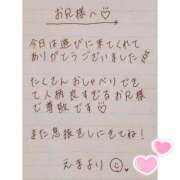 お兄様へ♡
今日は遊びに来てくれて
ありがとうございました
たくさんおしゃべりできて
て人柄良すぎるお兄様
で尊敬です♡
また息抜きしにきてね！
えまより